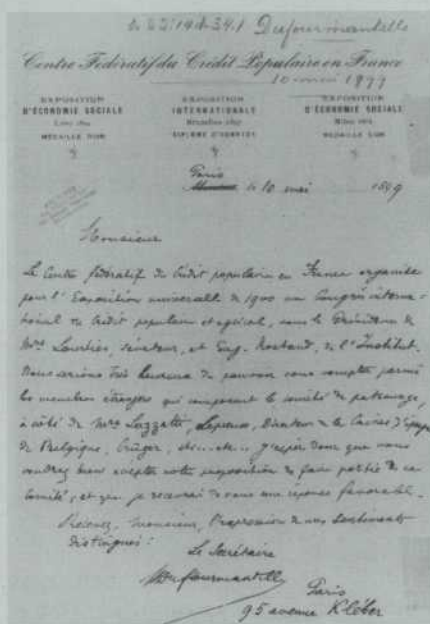 Dufourmantelle
Centre Fédératif du Crédit Populaire en France
10 mai 1899
EXPOSITION
D'ÉCONOMIE SOCIALE
MÉDAILLE D'OR
EXPOSITION
INTERNATIONALE
Bruxelles 1897
DIPLOME D'HONNEUR
EXPOSITION
D'ÉCONOMIE SOCIALE
MÉDAILLE D'OR
Paris
le 10 mai 1899
Monsieur
Le Centre fédératif du Crédit populaire en France organise
pour l'Exposition universelle de 1900 un Congrès interna-
tional de Crédit populaire et agricole, sous la Présidence de
Mrs Lourties, sénateur, et Eug. Rostand, de l'Institut.
Nous serions très heureux de pouvoir vous compter parmi
les membres étrangers qui composent le comité de patronage,
à côté de Mrs Luzzatti, Lepreux, Directeur de la Caisse d'Epargne
de Belgique, Crüger, etc... etc... J'espère donc que vous
voudrez bien accepter notre proposition de faire partie de ce
Comité, et que je recevrai de vous une réponse favorable.
Recevez, Monsieur, l'expression de mes sentiments
distingués.
Le Secrétaire
Dufourmantelle
Paris
95 avenue Kléber